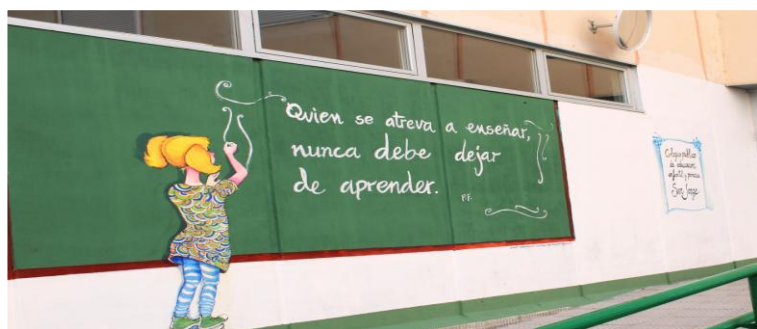 Quien se atreva a enseñar,
nunca debe dejar
de aprender.
P.F.
Colegio público
de educación
infantil y primaria
San Jorge